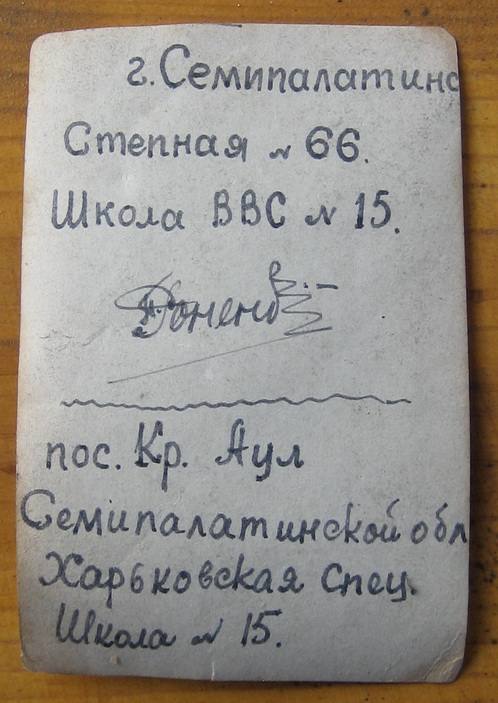 г. Семипалатинс
Степная № 66.
Школа ВВС № 15.
пос. Кр. Аул
Семипалатинской обл
Харьковская спец.
Школа № 15.